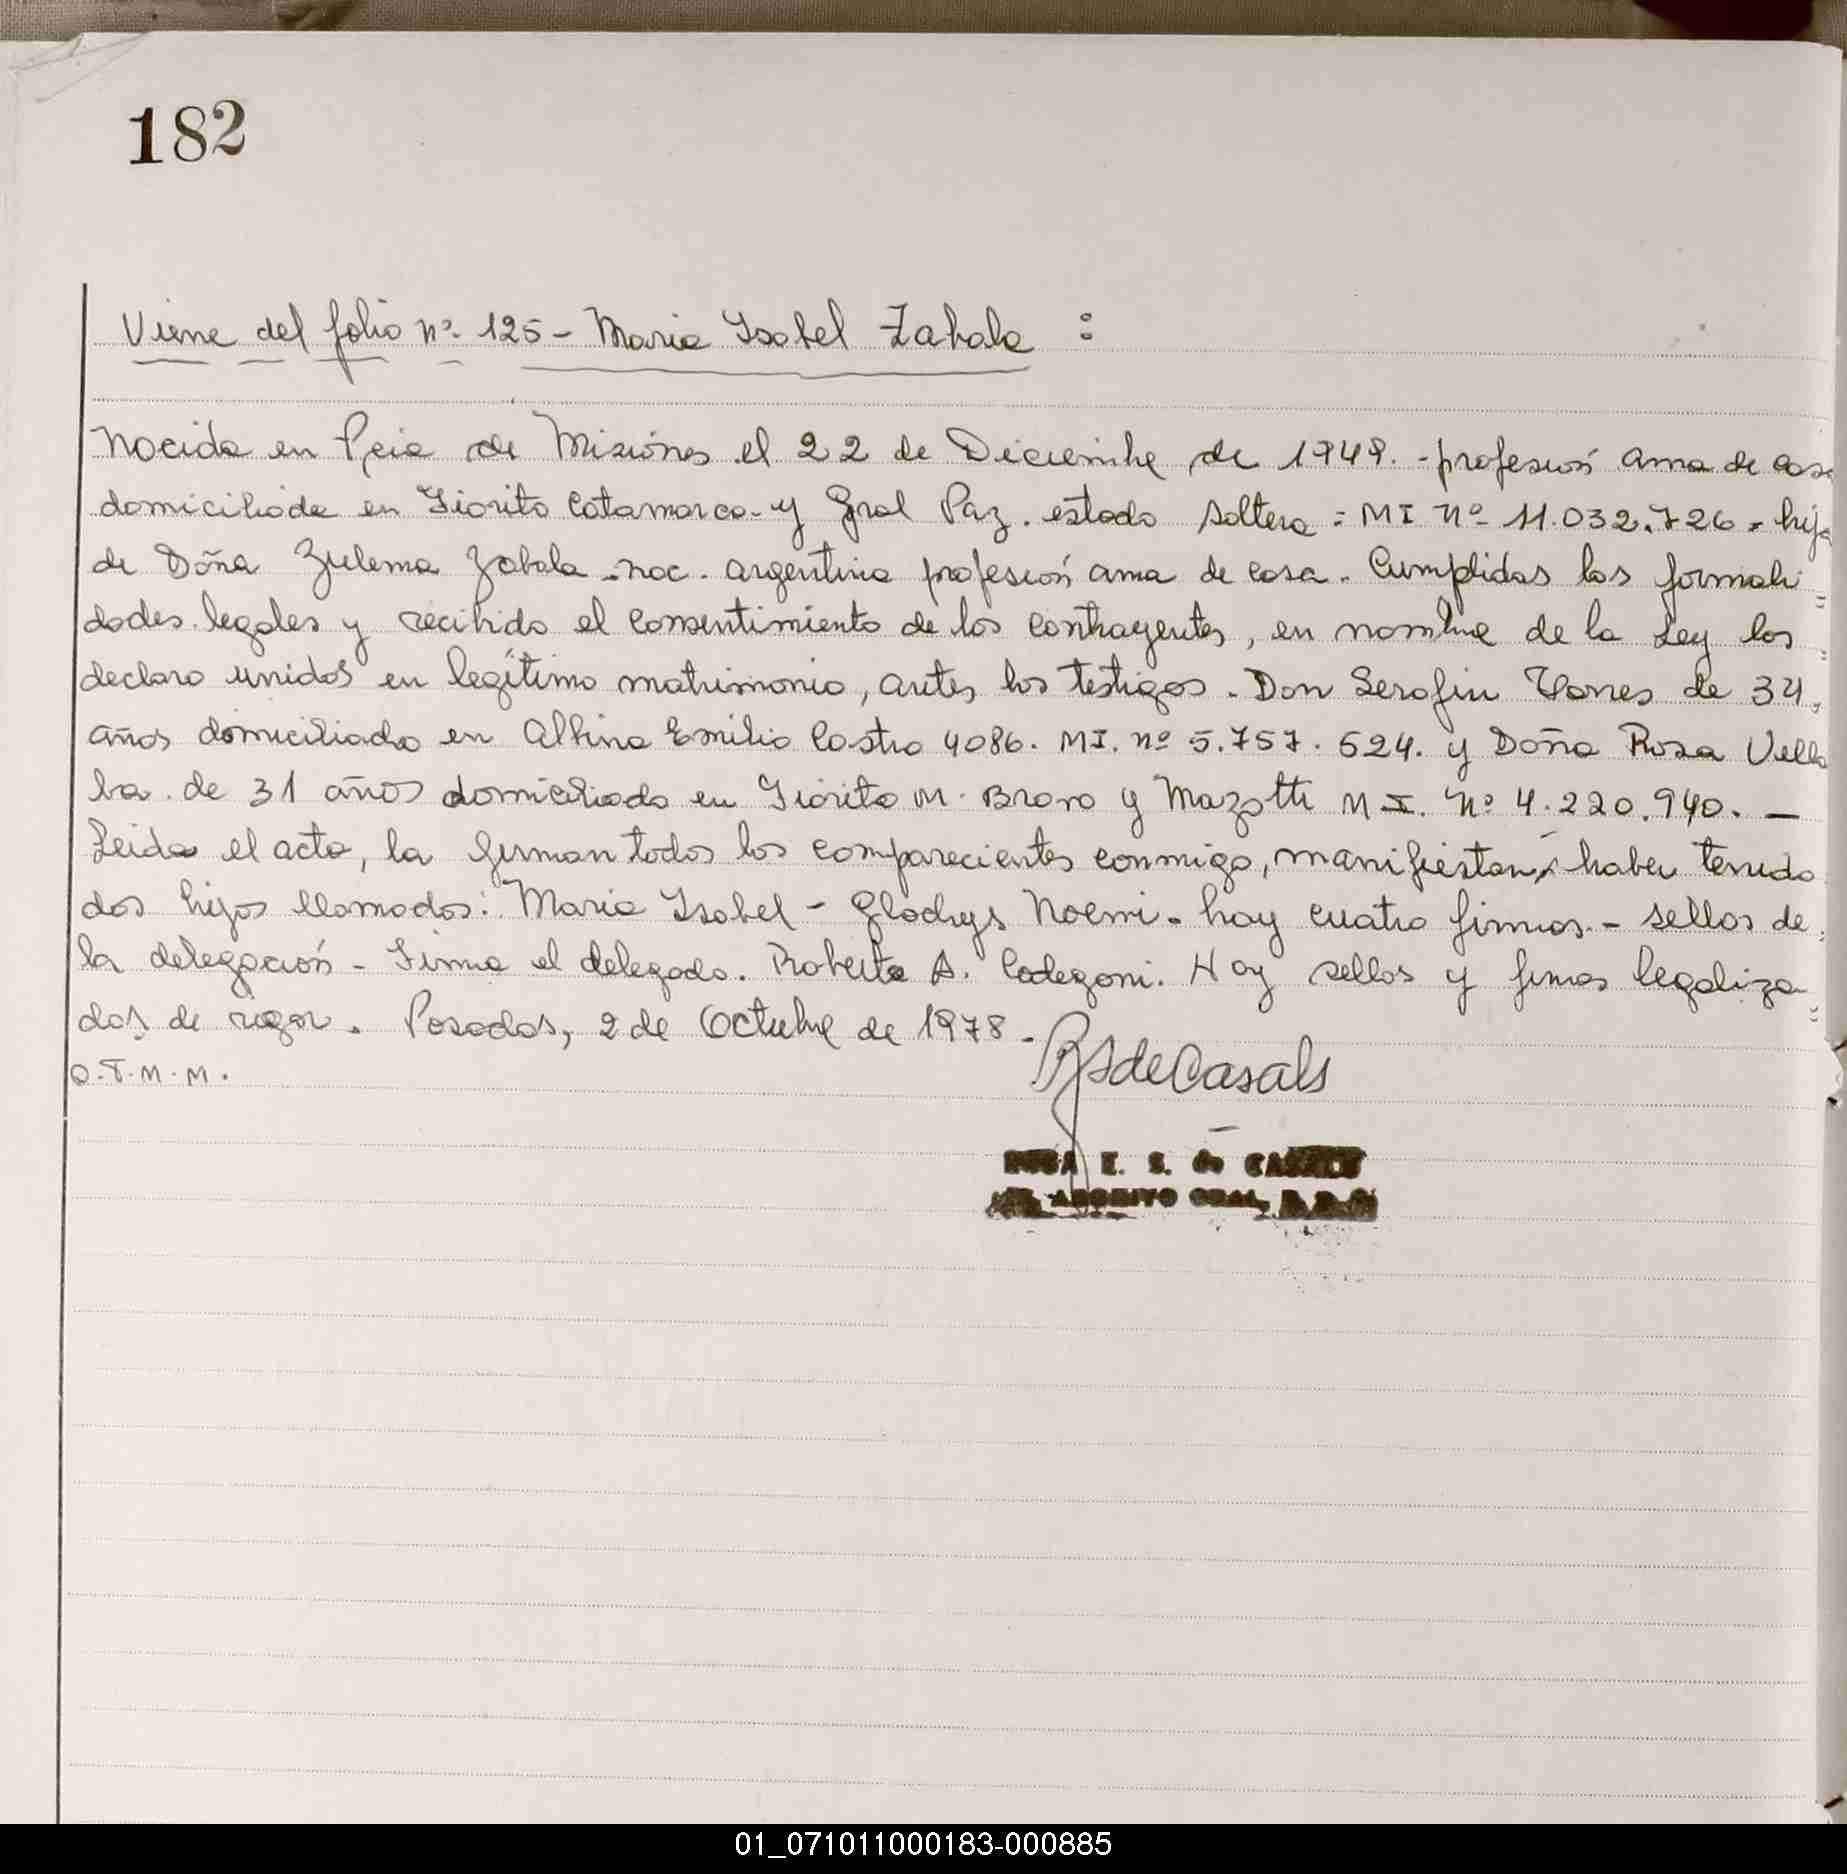 182
Viene del folio nº 125 - Maria Isabel Zabala :
Nacida en Pcia de Misiones el 22 de Diciembre de 1948. - profesión ama de casa
domiciliada en Fiorito Catamarca y Gral Paz. estado soltera = MI Nº 11.032.726 = hija
de Doña Zulema Zabala - nac. argentina profesión ama de casa. Cumplidas las formali=
dades legales y recibido el consentimiento de los contrayentes, en nombre de la Ley los
declaro unidos en legítimo matrimonio, antes los testigos - Don Serafin Torres de 34
años domiciliado en Albino Emilio Castro 4086. MI. nº 5.757.524. y Doña Rosa Vella
ba de 31 años domiciliada en Fiorito M. Bravo y Mazotti M I. Nº 4.220.940. —
Leida el acta, la firman todos los comparecientes conmigo, manifiestan haber tenido
dos hijos llamados: Maria Isabel - Gladys Noemi - hay cuatro firmas - sellos de
la delegación - Firma el delegado. Roberto A. Codegoni. Hay sellos y firmas legaliza=
das de rigor. Posadas, 2 de Octubre de 1978 -
O.T.M.M.
RSdeCasals
ROSA E. S. de CASALS
ARCHIVO GRAL.
01_071011000183-000885